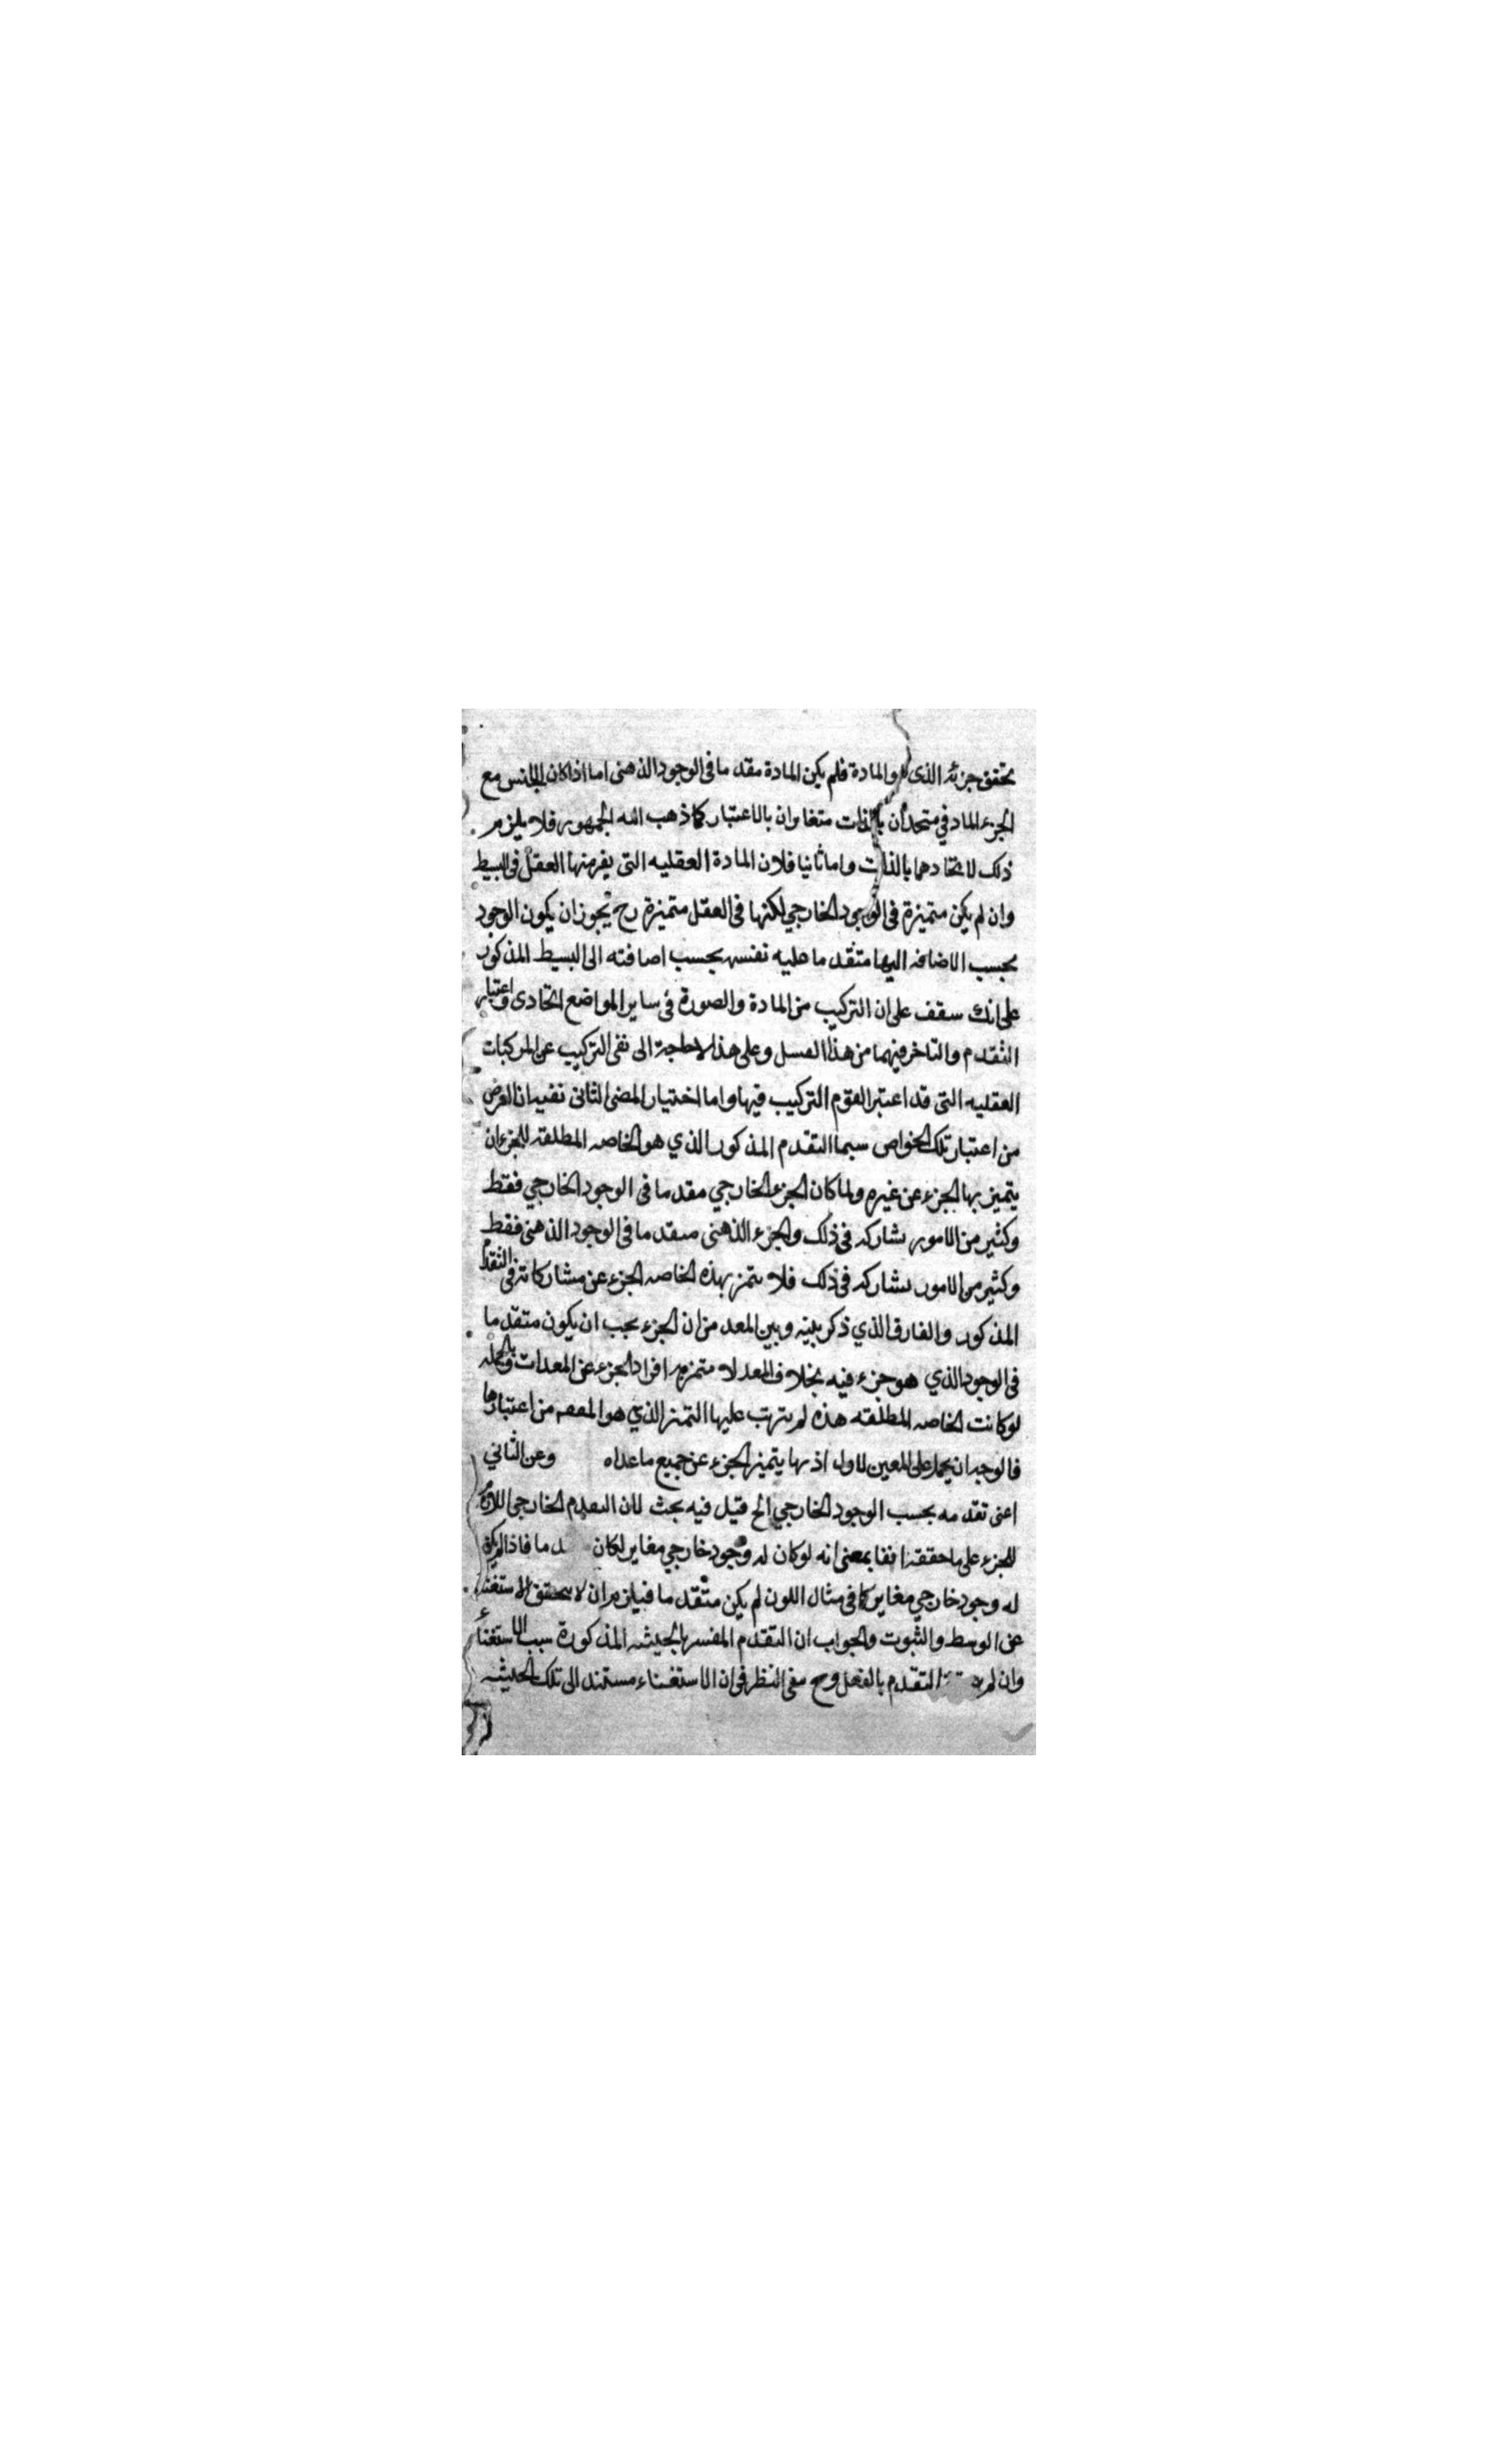 تحقق جزئه الذى هو المادة فلم يكن المادة مقدما فى الوجود الذهنى اما اذا كان الجنس مع
الجزء المادي متحدان بالذات متغايران بالاعتبار كما ذهب اليه الجمهور فلا يلزم
ذلك لاتحادهما بالذات واما ثانيا فلان المادة العقليه التى يفرضها العقل فى البسيط
وان لم يكن متميزة فى الوجود الخارجي لكنها فى العقل متميزة وح يجوز ان يكون الوجود
بحسب الاضافه اليها متقدما عليه نفسه بحسب اضافته الى البسيط المذكور
على انك ستقف على ان التركيب من المادة والصورة فى ساير المواضع اتحادى واعتبار
التقدم والتاخر فيهما من هذا القبيل وعلى هذا لا حاجة الى نفى التركيب عن المركبات
العقليه التى قد اعتبر القوم التركيب فيها واما اختيار المضى الثانى ففيه ان الغرض
من اعتبار تلك الخواص سيما التقدم المذكور الذي هو الخاصه المطلقه للجزء ان
يتميز بها الجزء عن غيره ولما كان الجزء الخارجي مقدما فى الوجود الخارجي فقط
وكثير من الامور يشاركه فى ذلك والجزء الذهنى متقدما فى الوجود الذهنى فقط
وكثير من الامور يشاركه فى ذلك فلا يتميز بهذه الخاصه الجزء عن مشاركاته فى التقدم
المذكور والفارق الذي ذكر بينه وبين المعد من ان الجزء يجب ان يكون متقدما
فى الوجود الذي هو جزء فيه بخلاف المعد لا يتميز به افراد الجزء عن المعدات وبالجملة
لو كانت الخاصه المطلقه هذه لم يترتب عليها التميز الذي هو المهم من اعتبارها
فالوجه ان يحمل على المعنين الاول اذ بها يتميز الجزء عن جميع ما عداه وعن الثاني
اعنى تقدمه بحسب الوجود الخارجي الخ قيل فيه بحث لان التقدم الخارجى اللازم
للجزء على ما حققته انفا بمعنى انه لو كان له وجود خارجي مغاير لكان ما فاذا لم يكن
له وجود خارجي مغاير كما فى مثال اللون لم يكن متقدما فيلزم ان لا يتحقق الاستغناء
عن الوسط والثبوت والجواب ان التقدم المفسر بالحيثيه المذكورة سبب الاستغناء
وان لم التقدم بالفعل وح بقى النظر فى ان الاستغناء مستند الى تلك الحيثيه